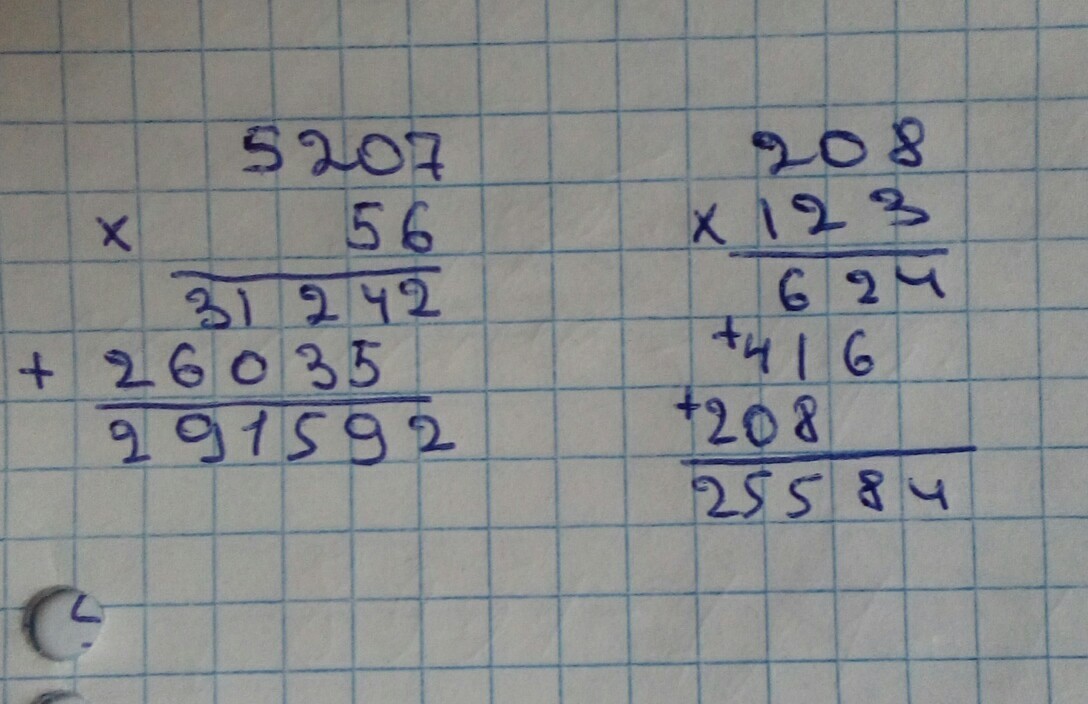 5207
x 56
31242
+ 26035
291592
208
x 123
624
+416
+208
25584